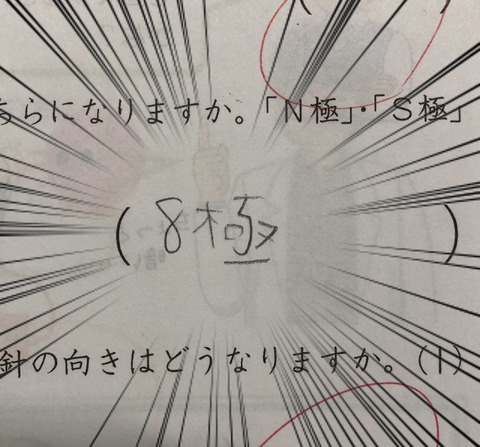 ちらになりますか。「N極」・「S極」
(8極)
針の向きはどうなりますか。(1)